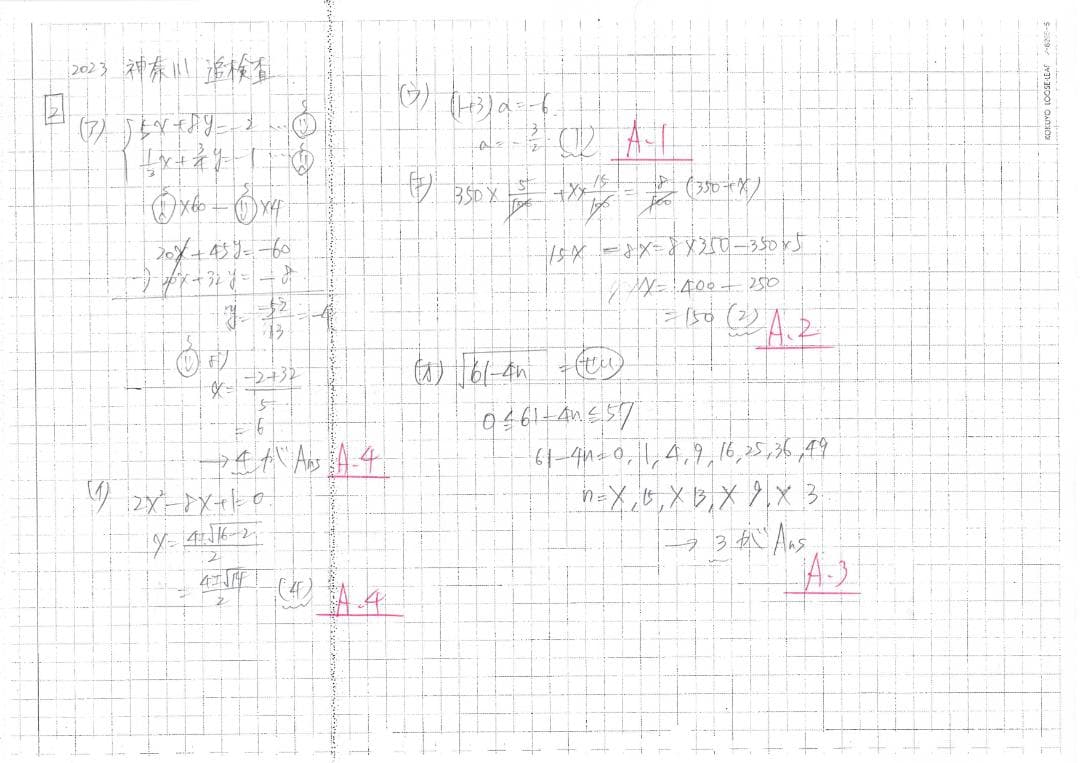 2023 神奈川 追検査
2
(ア) 5x+8y=-2 …
1/3x+3/4y=-1 …
×60- ×4
20x+45y=-60
-) 20x+32y=-8
y=-52/13=-4
より
x=(-2+32)/5
=6
→4が Ans A.4
(イ) 2x²-8x+1=0
x=(4±√16-2)/2
=(4±√14)/2 (4) A.4
(ウ) (1+3)a=-6
a=-3/2 (1) A-1
(エ) 350×5/100+x×15/100=8/100(350+x)
15x-8x=8×350-350×5
x=400-250
=150 (2) A.2
(オ) √61-4n
0≦61-4n≦57
61-4n=0,1,4,9,16,25,36,49
n=×,15,×13,×9,×3
→3が Ans
A-3
KOKUYO LOOSE-LEAF